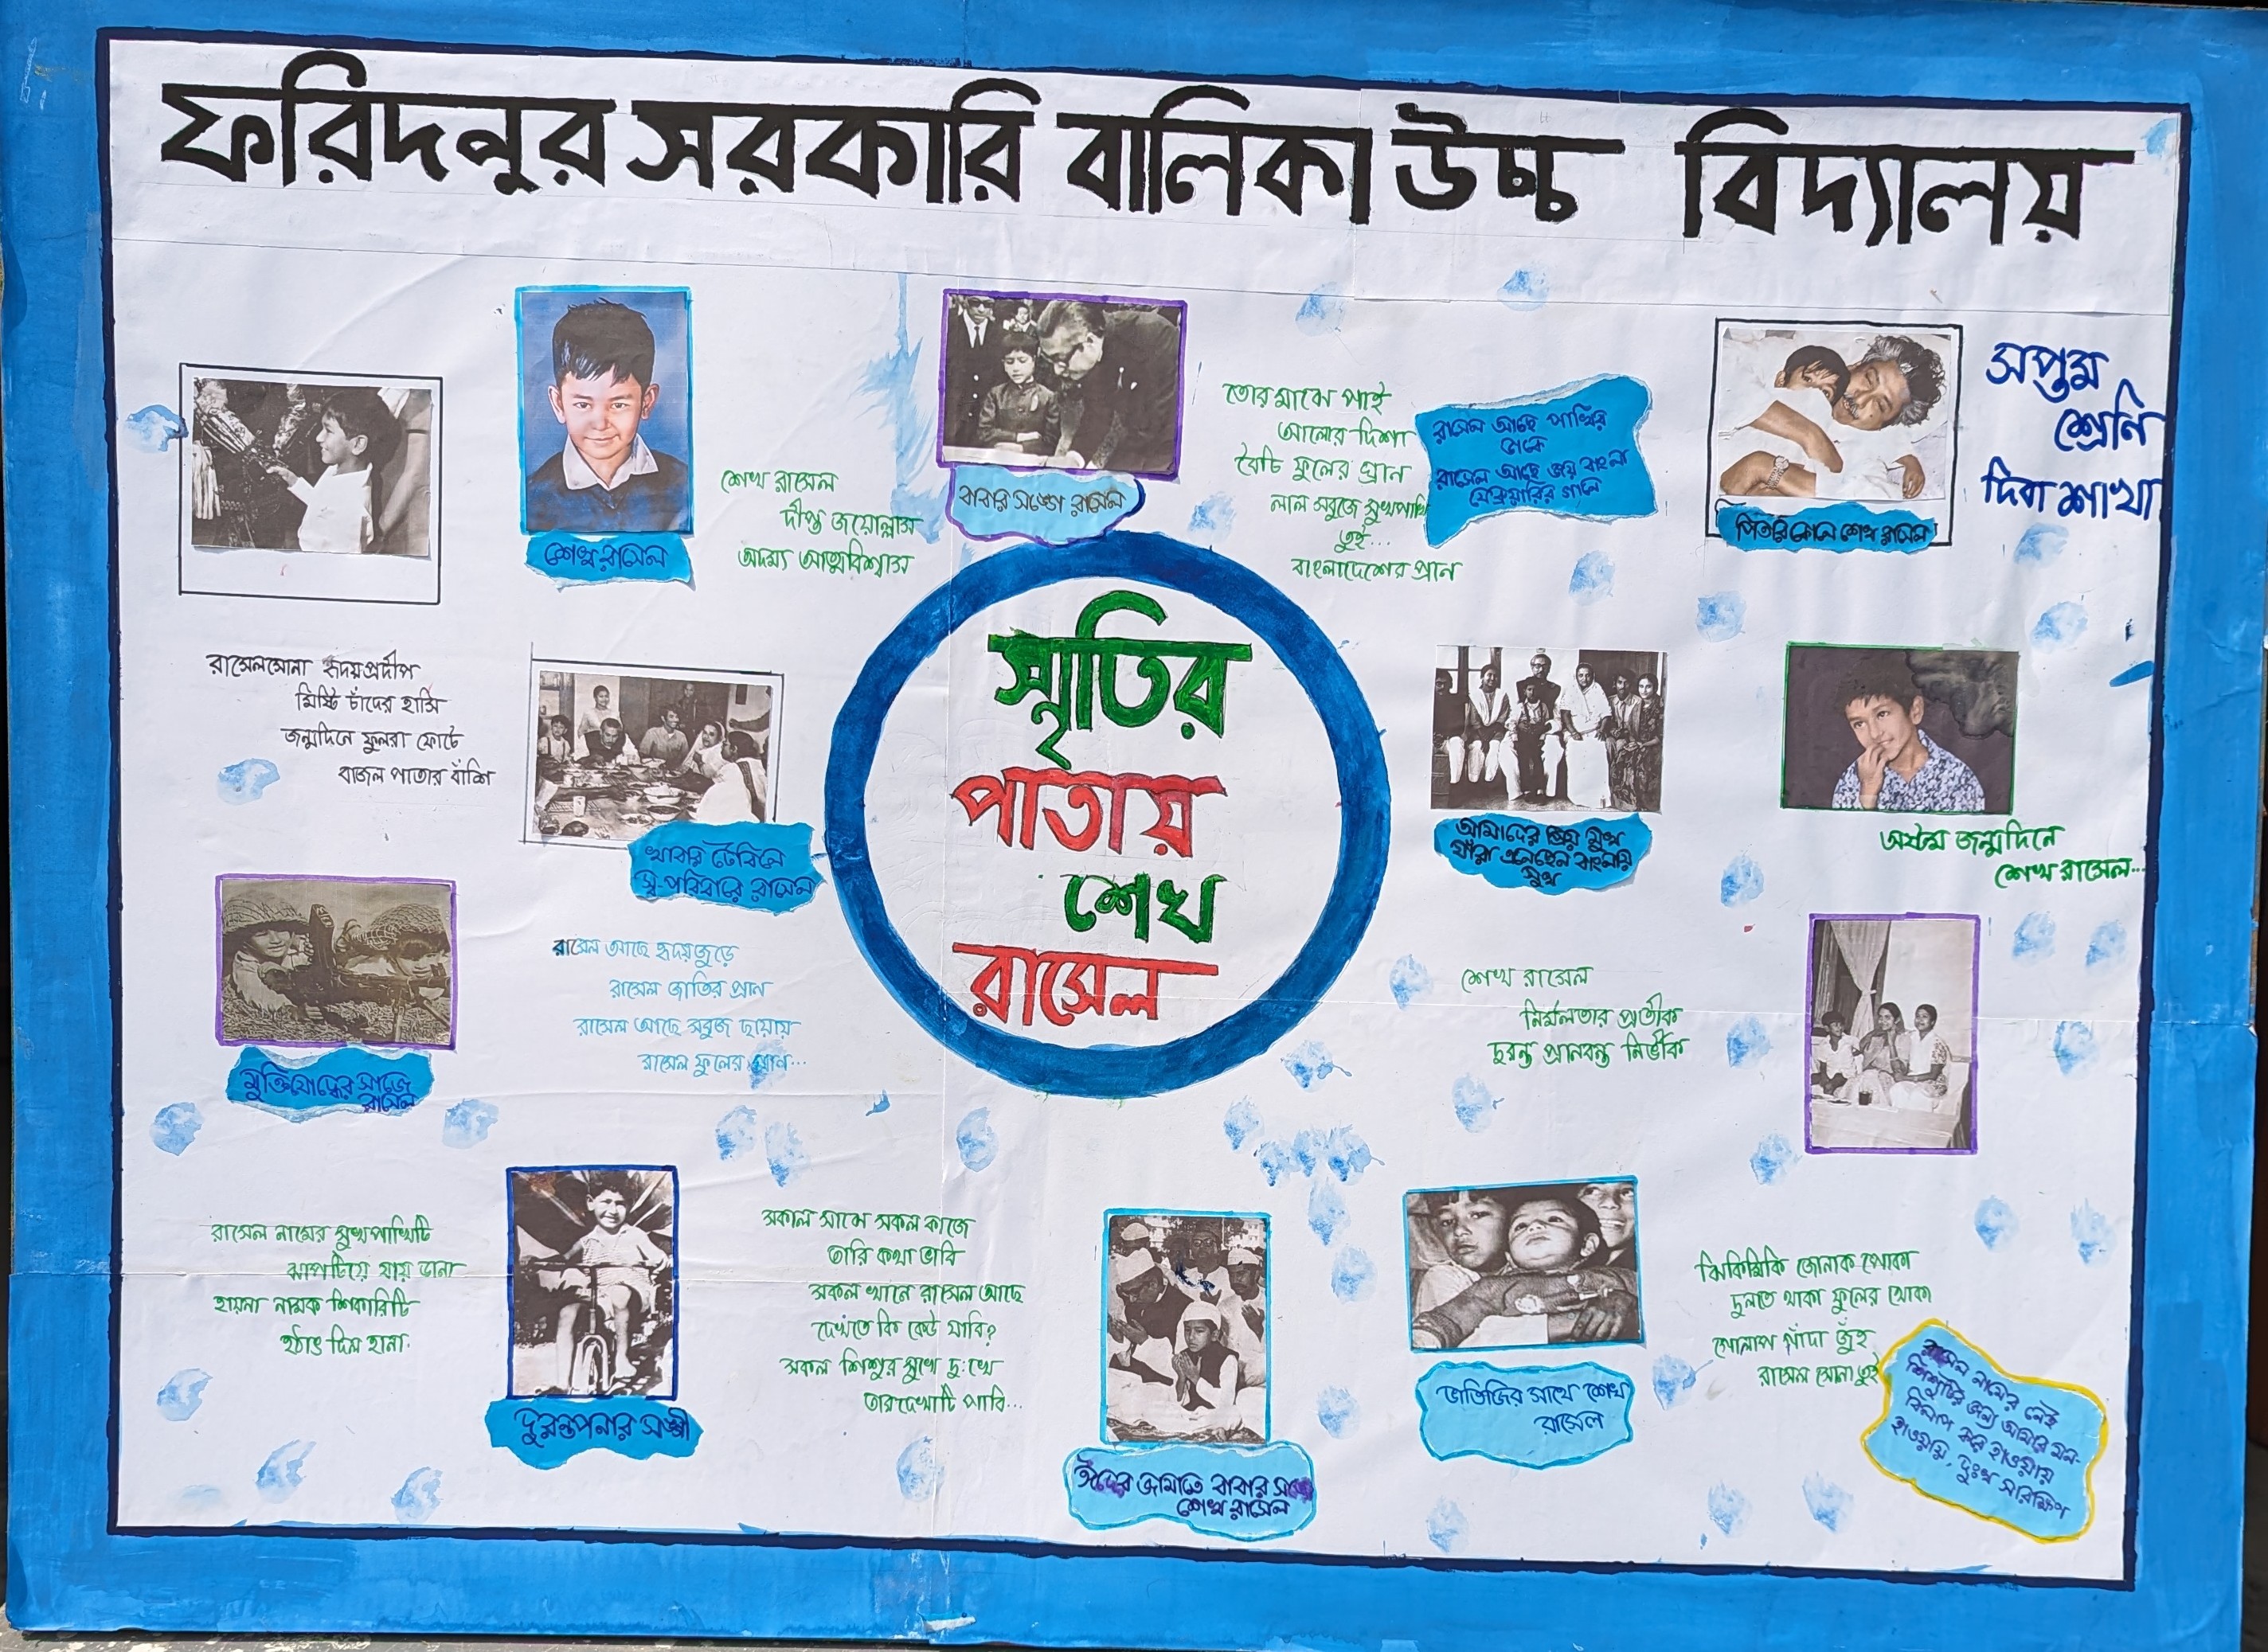 ফরিদপুর সরকারি বালিকা উচ্চ বিদ্যালয়
সপ্তম
শ্রেনি
দিবা শাখা
শেখ রাসেল
শেখ রাসেল
দীপ্ত জয়োল্লাস
অদম্য আত্মবিশ্বাস
বাবার সঙ্গে রাসেল
তোর মাঝে পাই
আলোর দিশা
বৈচি ফুলের ঘ্রান
লাল সবুজে সুখপাখি
তুই...
বাংলাদেশের প্রান
রাসেল আছে পাখির
ডাকে
রাসেল আছে জয় বাংলা
ফেব্রুয়ারির গানে
পিতার কোলে শেখ রাসেল
স্মৃতির
পাতায়
শেখ
রাসেল
রাসেলসোনা হৃদয়প্রদীপ
মিষ্টি চাঁদের হাসি
জন্মদিনে ফুলরা ফোটে
বাজল পাতার বাঁশি
খাবার টেবিলে
স্ব-পরিবারে রাসেল
আমাদের প্রিয় মুখ
যারা এনেছেন বাংলায়
সুখ
অষ্টম জন্মদিনে
শেখ রাসেল...
মুক্তিযোদ্ধের সাজে
রাসেল
রাসেল আছে হৃদয়জুড়ে
রাসেল জাতির প্রান
রাসেল আছে সবুজ ছায়ায়
রাসেল ফুলের ঘ্রান...
শেখ রাসেল
নির্মলতার প্রতীক
দুরন্ত প্রানবন্ত নির্ভীক
রাসেল নামের সুখপাখিটি
ঝাপটিয়ে যায় ডানা
হায়না নামক শিকারিটি
হঠাৎ দিল হানা.
দুরন্তপনার সঙ্গী
সকাল সাঝে সকল কাজে
তারি কথা ভাবি
সকল খানে রাসেল আছে
দেখতে কি কেউ যাবি?
সকল শিশুর সুখে দু:খে
তার দেখাটি পাবি...
ঈদের জামাতে বাবার সঙ্গে
শেখ রাসেল
ভাতিজির সাথে শেখ
রাসেল
ঝিকিমিকি জোনাক পোকা
দুলতে থাকা ফুলের থোকা
গোলাপ গাঁদা জুঁই
রাসেল সোনা তুই
রাসেল নামের সেই
শিশুটির জন্য আমার মন-
বিলাপ করে হাওয়ায়
হাওয়ায়, দুঃখ সারাক্ষণ